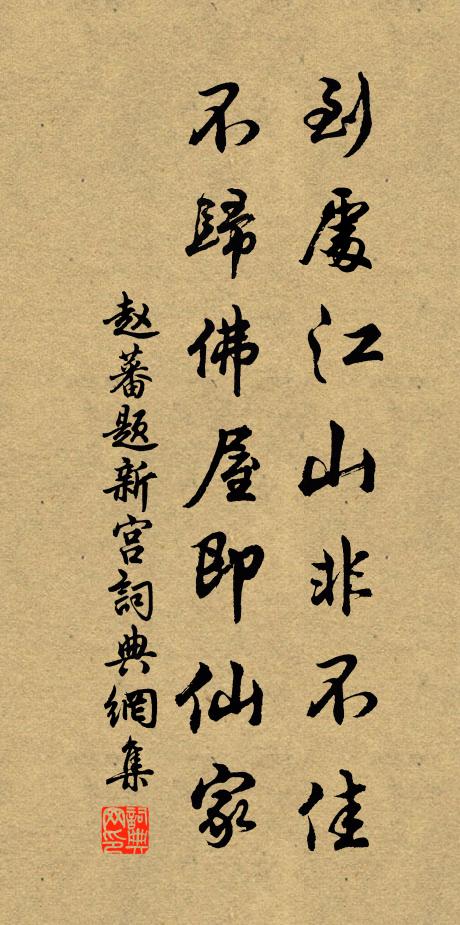 到處江山非不佳
不歸佛屋即仙家
赵蕃题新宫詞典網集
詞典网印